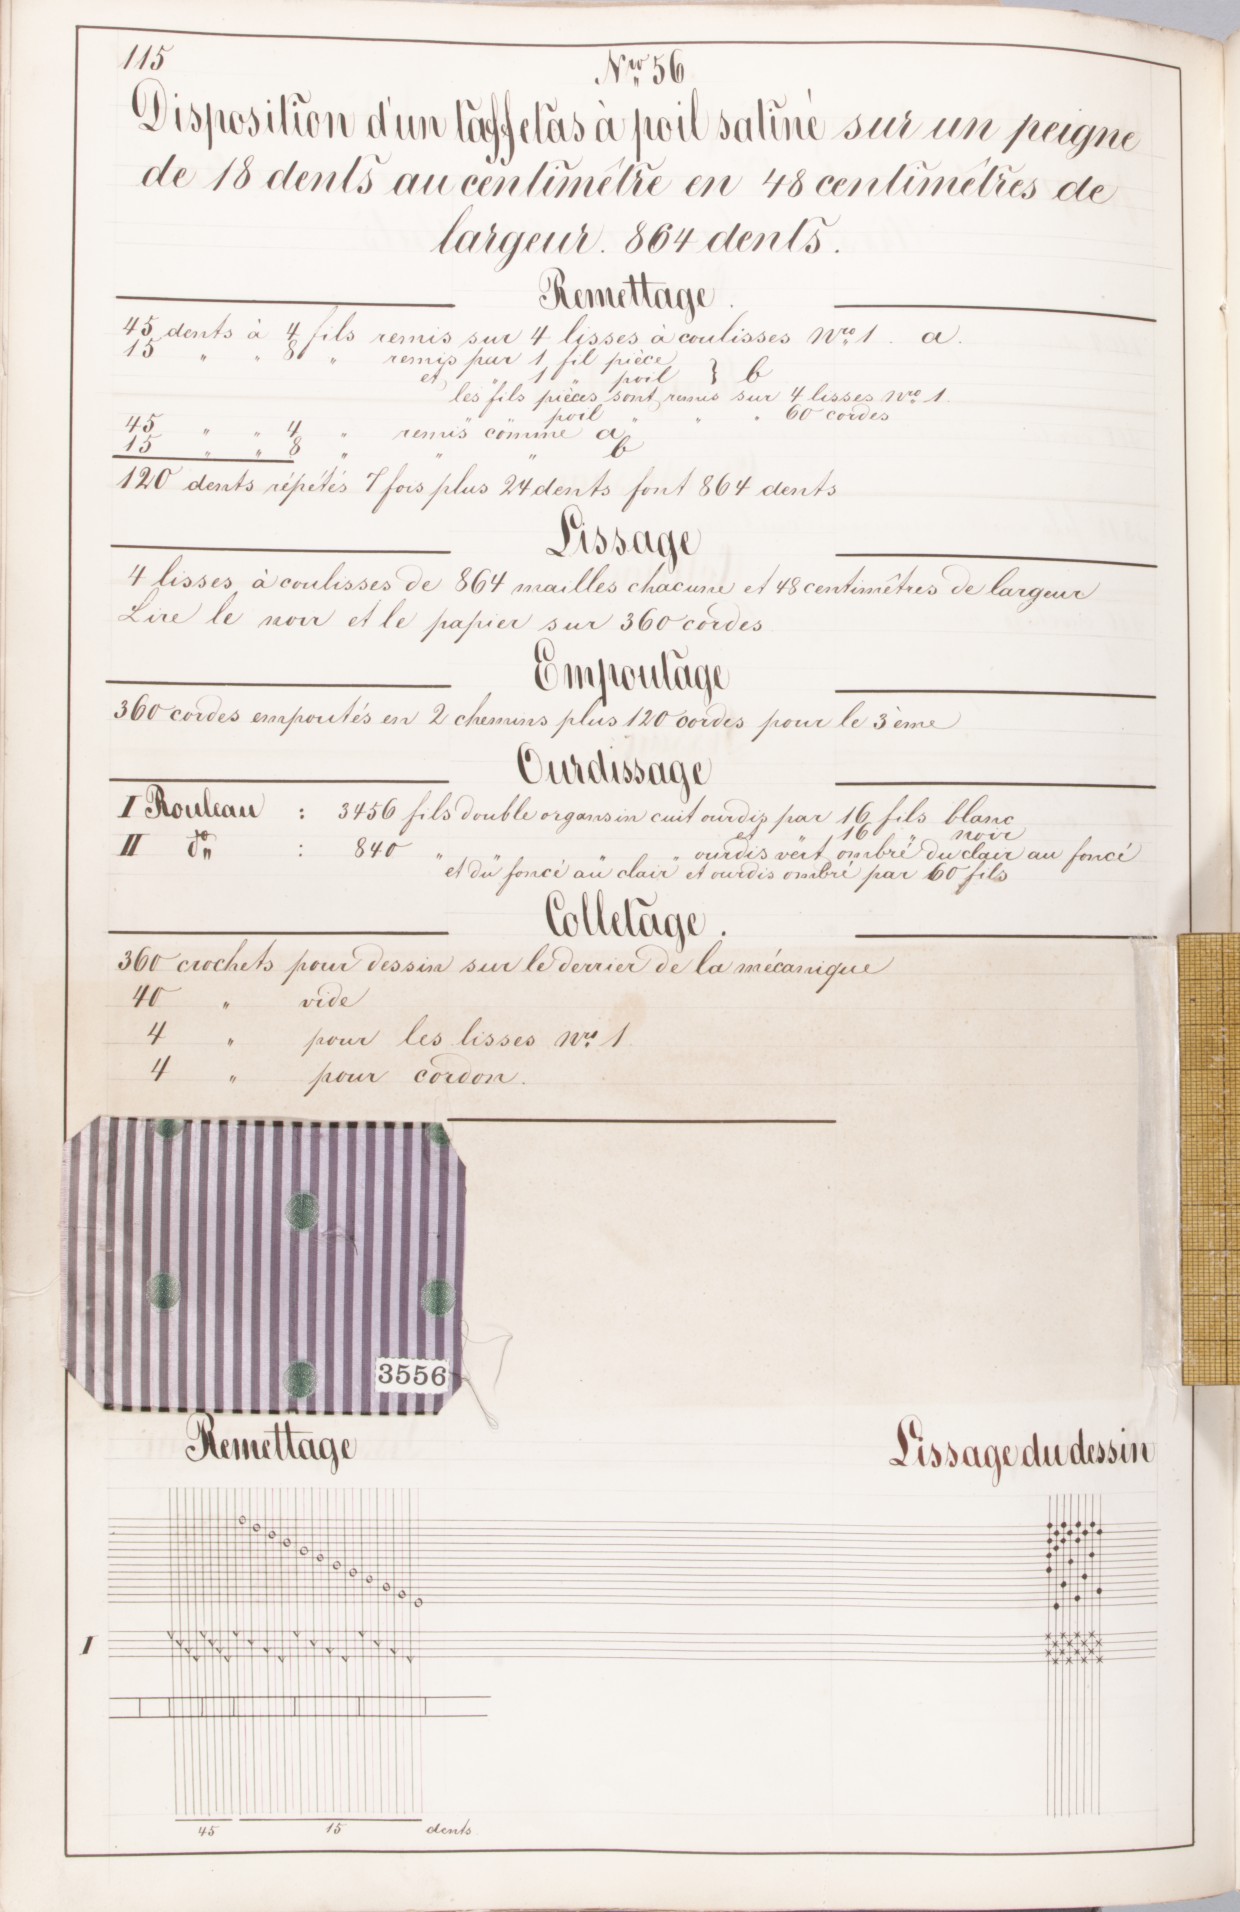 115
Nro 56
Disposition d'un taffetas à poil satiné sur un peigne
de 18 dents au centimêtre en 48 centimêtres de
largeur. 864 dents.
Remettage.
45 dents à 4 fils remis sur 4 lisses à coulisses Nro 1. a.
15 " " 8 " remis par 1 fil pièce
et " 1 " poil } b
les fils pièces sont remis sur 4 lisses Nro 1
" " poil " " " 60 cordes
45 " " 4 " remis comme a
15 " " 8 " " " b
120 dents répétés 7 fois plus 24 dents font 864 dents
Lissage
4 lisses à coulisses de 864 mailles chacune et 48 centimêtres de largeur
Lire le noir et le papier sur 360 cordes
Empoutage
360 cordes empoutés en 2 chemins plus 120 cordes pour le 3ème
Ourdissage
I Rouleau : 3456 fils double organsin cuit ourdis par 16 fils blanc
et " 16 " noir
II do " : 840 " " " ourdis vert ombré du clair au foncé
et du foncé au clair et ourdis ombré par 60 fils
Colletage.
360 crochets pour dessin sur le derrier de la mécanique
40 " vide
4 " pour les lisses Nro 1
4 " pour cordon.
3556
Remettage
Lissage du dessin
I
45 15 dents